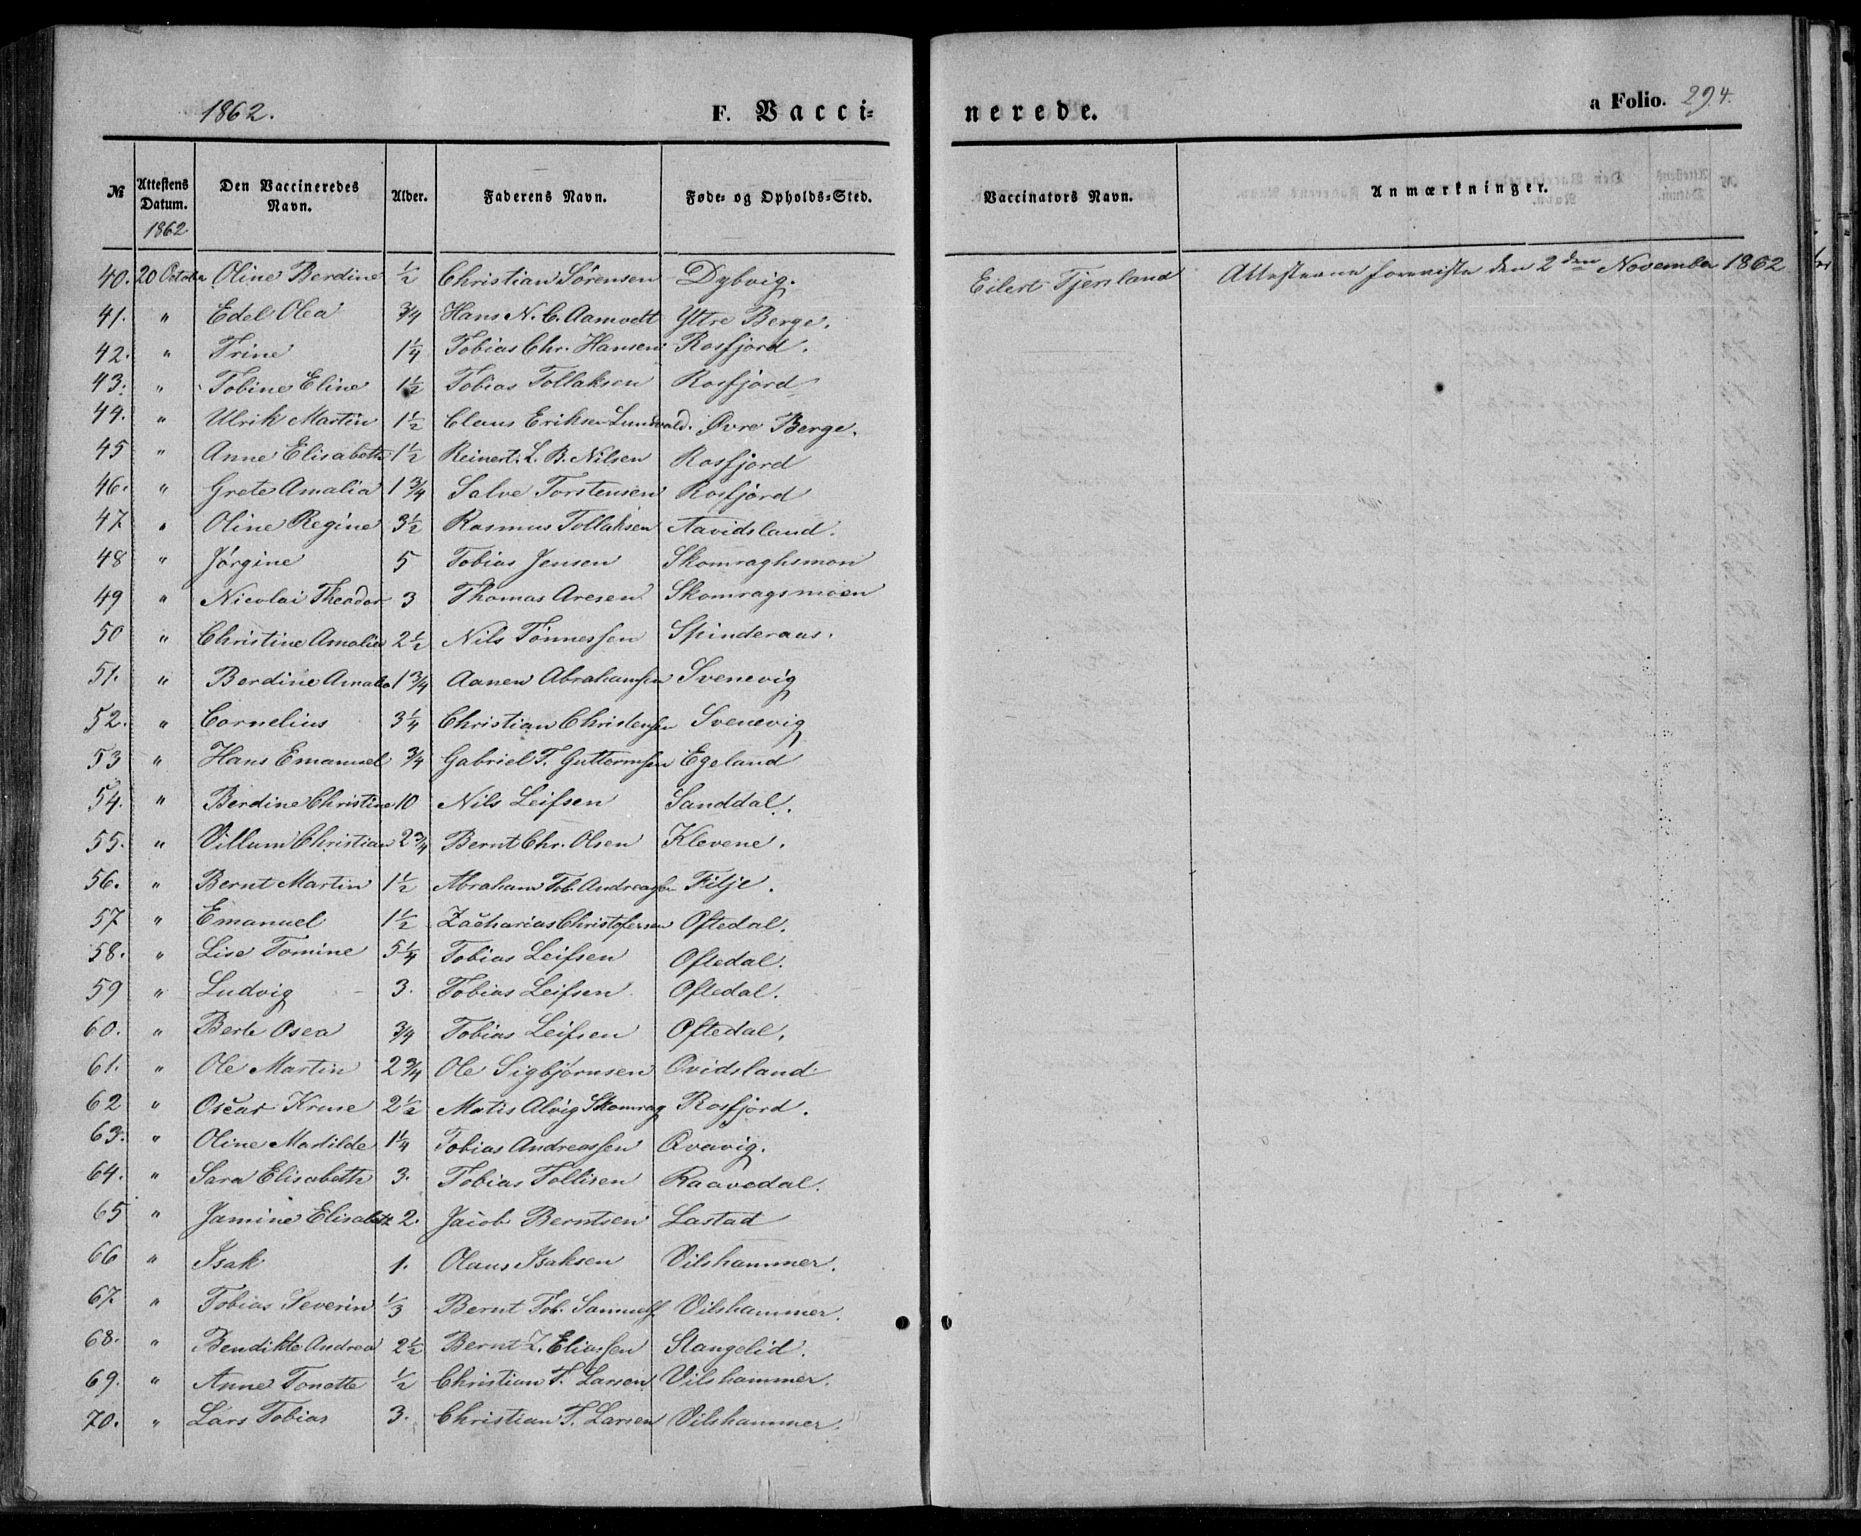 1862. F. Vacci= nerede. a Folio. 294.
№ Attestens Datum. Den Vaccineredes Navn. Alder. Faderens Navn. Føde= og Opholds=Sted. Vaccinators Navn. Anmærkninger.
1862
40. 20 October Oline Berdine ½ Christian Sörensen Dybvig. Eilert Tjersland Attesterne foreviste den 2den November 1862
41. " Edel Olea ¾ Hans N. C. Aamodt Yttre Berge.
42. " Trine 1¼ Tobias Chr. Hansen Rosfjord.
43. " Tobine Eline 1½ Tobias Tollaksen Rosfjord
44. " Ulrik Martin 1½ Claus Eriksen Lundvald. Øvre Berge.
45 " Anne Elisabeth 1½ Reinert. L. B. Nilsen Rosfjord
46. " Grete Amalia 1¾ Salve Torstensen Rosfjord
47 " Oline Regine 3½ Rasmus Tollaksen Aavidsland.
48 " Jörgine 5 Tobias Jensen Skomraghsmon
49 " Nicolai Theodor 3 Thomas Aresen Skomragsmoen
50 " Christine Amalia 2½ Nils Tönnessen Spinderaas.
51. " Berdine Amalia 1¾ Aanen Abrahamsen Svenevig
52. " Cornelius 3¼ Christian Christensen Svenevig
53 " Hans Emanuel ¾ Gabriel T. Guttormsen Egeland
54. " Berdine Christine 10 Nils Leifsen Sanddal.
55. " Villum Christian 2¾ Bernt Chr. Olsen Klevene.
56. " Bernt Martin 1½ Abraham Tob. Andreassen Filje.
57 " Emanuel 1½ Zacharias Christofersen Oftedal.
58. " Lise Tomine 5¼ Tobias Leifsen Oftedal.
59 " Ludvig 3. Tobias Leifsen Oftedal.
60. " Berte Osea ¾ Tobias Leifsen Oftedal.
61. " Ole Martin 2¾ Ole Sigbjörnsen Ovidsland
62 " Oscar Kruse 2½ Matis Alvig Skomrag Rosfjord.
63. " Oline Matilde 1¼ Tobias Andreassen Qvavig.
64. " Sara Elisabeth 3. Tobias Tollisen Raavedal.
65 " Jamine Elisabeth 2. Jacob Berntsen Lastad
66 " Isak 1. Olaus Isaksen Vilshammer.
67. " Tobias Severin ⅓ Bernt Tob. Samuels. Vilshammer.
68. " Bendikte Andrea 2½ Bernt Z. Eliassen Stangelid.
69. " Anne Tonette ½ Christian T. Larsen Vilshammer.
70. " Lars Tobias 3. Christian T. Larsen Vilshammer.